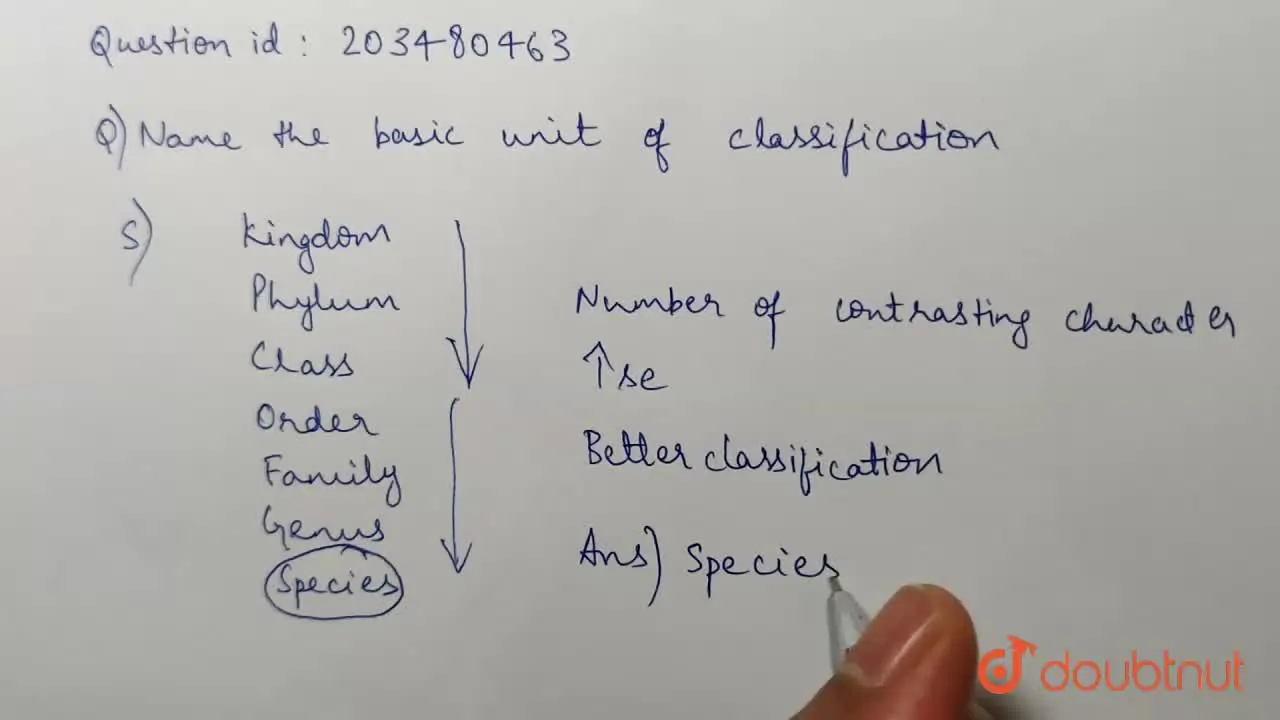 Question id : 203480463
Q) Name the basic unit of classification
S) Kingdom
Phylum
Class
Order
Family
Genus
Species
Number of contrasting character
↑se
Better classification
Ans) Species
doubtnut